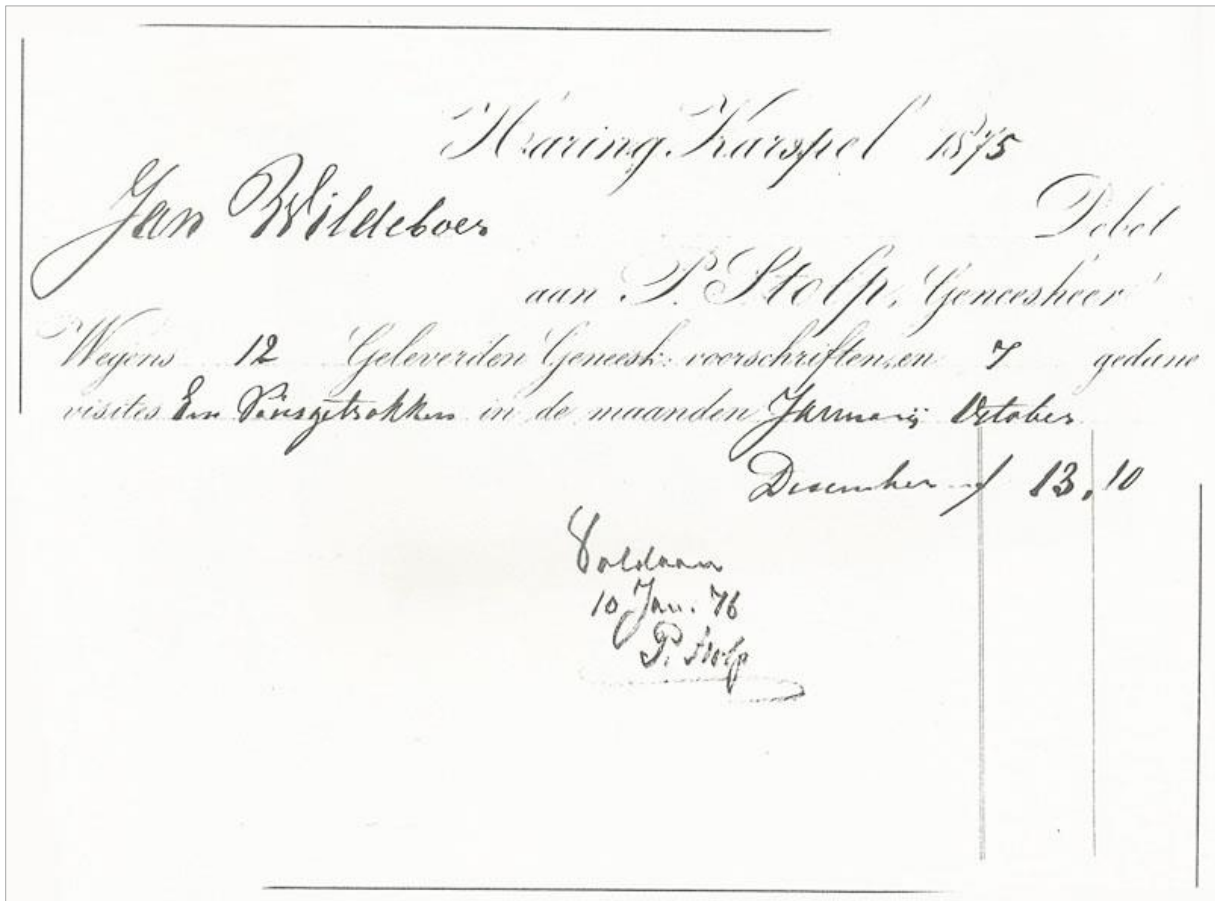 Haaring Karspel 1875
Jan Wildeboer Debet
aan P. Stolp, Geneesheer
Wegens 12 Geleverden Geneesk: voorschriften, en 7 gedane
visites Een in de maanden Januarij October
Desember f 13,10
Voldaan
10 Jan. 76
P. Stolp